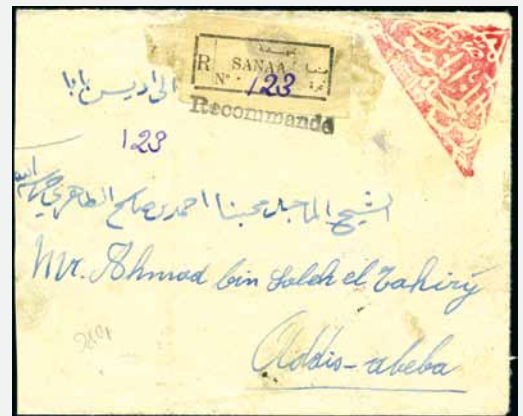 R SANAA صنعا
Nº 123 نمرة
Recommandé
الى اديس بابا
123
الشيخ الماجد محبنا احمد بن صالح الطاهري
Mr. Ahmad bin Saleh el Tahiry
Addis-abeba